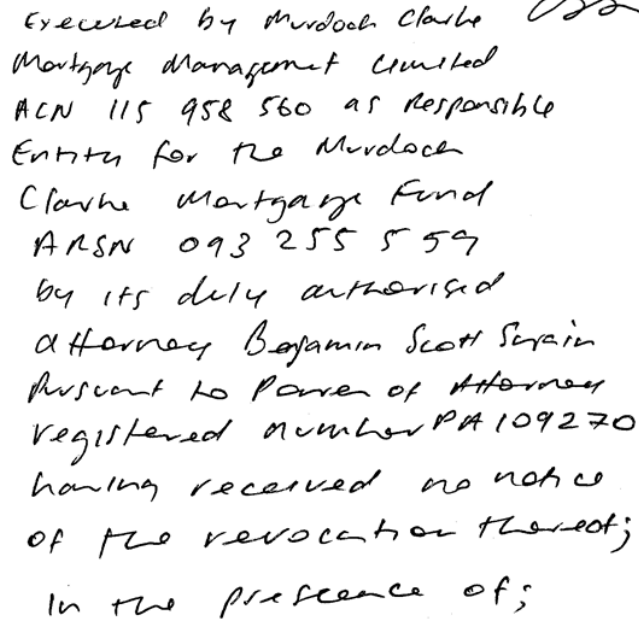 Executed by Murdoch Clarke
Mortgage Management Limited
ACN 115 958 560 as Responsible
Entity for the Murdoch
Clarke Mortgage Fund
ARSN 093 255 559
by its duly authorised
attorney Benjamin Scott Swain
Pursuant to Power of Attorney
registered number PA 109270
having received no notice
of the revocation thereof;
In the presence of;